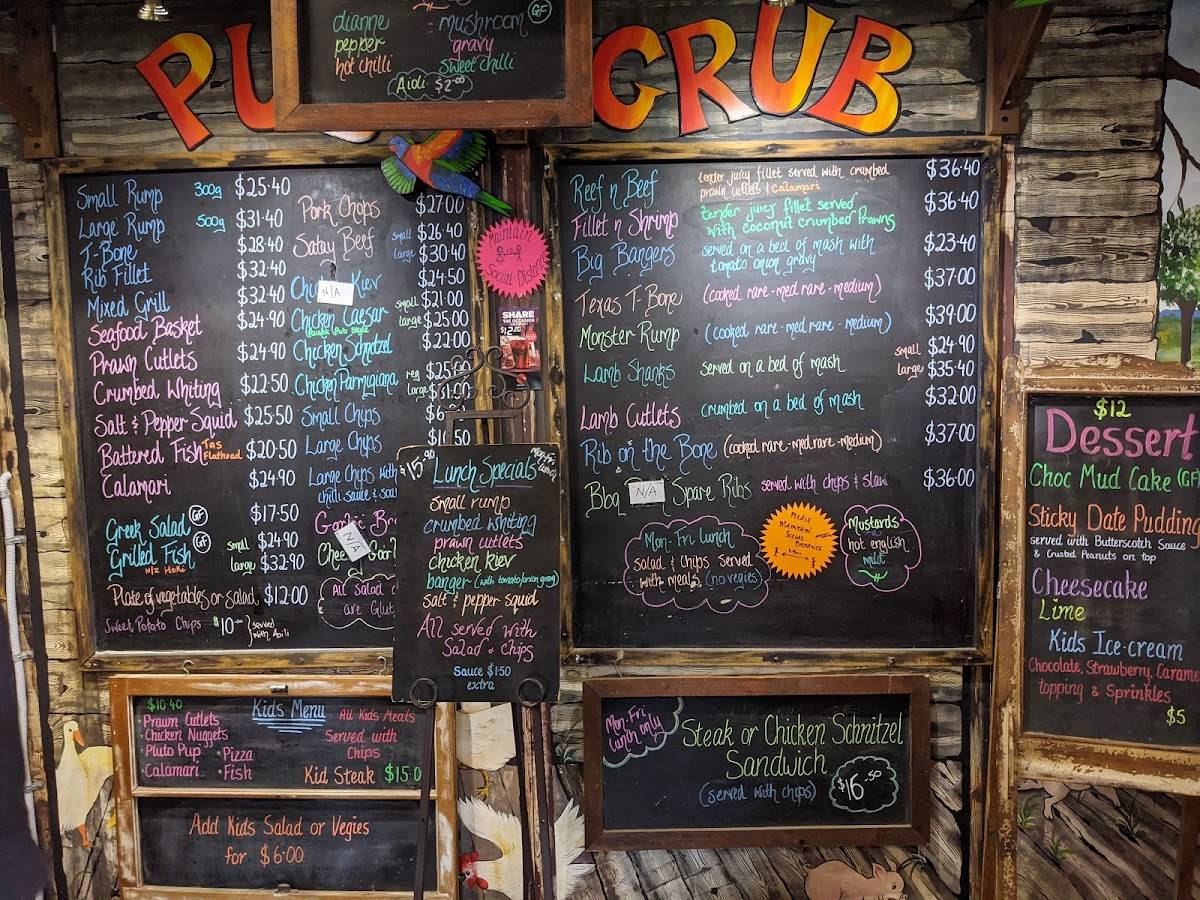 dianne - mushroom GF
pepper gravy
hot chilli sweet chilli
Aioli $2.00
PU GRUB
Small Rump 300g $25.40
Large Rump 500g $31.40
T-Bone $28.40
Rib Fillet $32.40
Mixed Grill $32.40
Seafood Basket $24.90
Prawn Cutlets $24.90
Crumbed Whiting $22.50
Salt & Pepper Squid $25.50
Battered Fish Tas Flathead $20.50
Calamari $24.90
Greek Salad GF $17.50
Grilled Fish GF small $24.90
NZ Hoki large $32.90
Plate of vegetables or salad $12.00
Sweet Potato Chips $10.00 served with Aoili
Pork Chops $27.00
Satay Beef small $26.40
large $30.40
N/A Kiev $24.50
Chicken Caesar small $21.00
Pub Style large $25.00
Chicken Schnitzel $22.00
Chicken Parmigiana reg
large
Small Chips
Large Chips
Large Chips with
chilli sauce & sou
N/A
All salad
are Glut
Maintain
Social Distance
SHARE
THE OCCASION
Lunch Specials Mon-Fri lunch
$15.90
Small rump
crumbed whiting
prawn cutlets
chicken kiev
banger (with tomato/onion gravy)
salt & pepper squid
All served with
Salad & Chips
Sauce $1.50
extra
Reef n Beef tender juicy fillet served with crumbed prawn cutlets & Calamari $36.40
Fillet n Shrimp tender juicy fillet served with coconut crumbed Prawns $36.40
Big Bangers served on a bed of mash with tomato onion gravy $23.40
Texas T-Bone (cooked rare-med rare-medium) $37.00
Monster Rump (cooked rare-med rare-medium) $39.00
Lamb Shanks served on a bed of mash small $24.90
large $35.40
Lamb Cutlets crumbed on a bed of mash $32.00
Rib on the Bone (cooked rare-med rare-medium) $37.00
Bbq N/A Spare Ribs served with chips & slaw $36.00
Mon-Fri lunch
salad & chips served
with meals (no vegies)
PLEASE
MAINTAIN
SOCIAL
DISTANCE
Mustards
hot english
mild
$12
Dessert
Choc Mud Cake (GF
Sticky Date Pudding
served with Butterscotch Sauce
& Crusted Peanuts on top
Cheesecake
Lime
Kids Ice-cream
Chocolate, Strawberry, Carame
topping & Sprinkles
$5
$10.40 Kids Menu
Prawn Cutlets
Chicken Nuggets
Pluto Pup · Pizza
Calamari · Fish
All Kids Meals
Served with
Chips
Kid Steak $15.0
Add Kids Salad or Vegies
for $6.00
Mon-Fri
lunch only
Steak or Chicken Schnitzel
Sandwich
(served with chips) $16.50